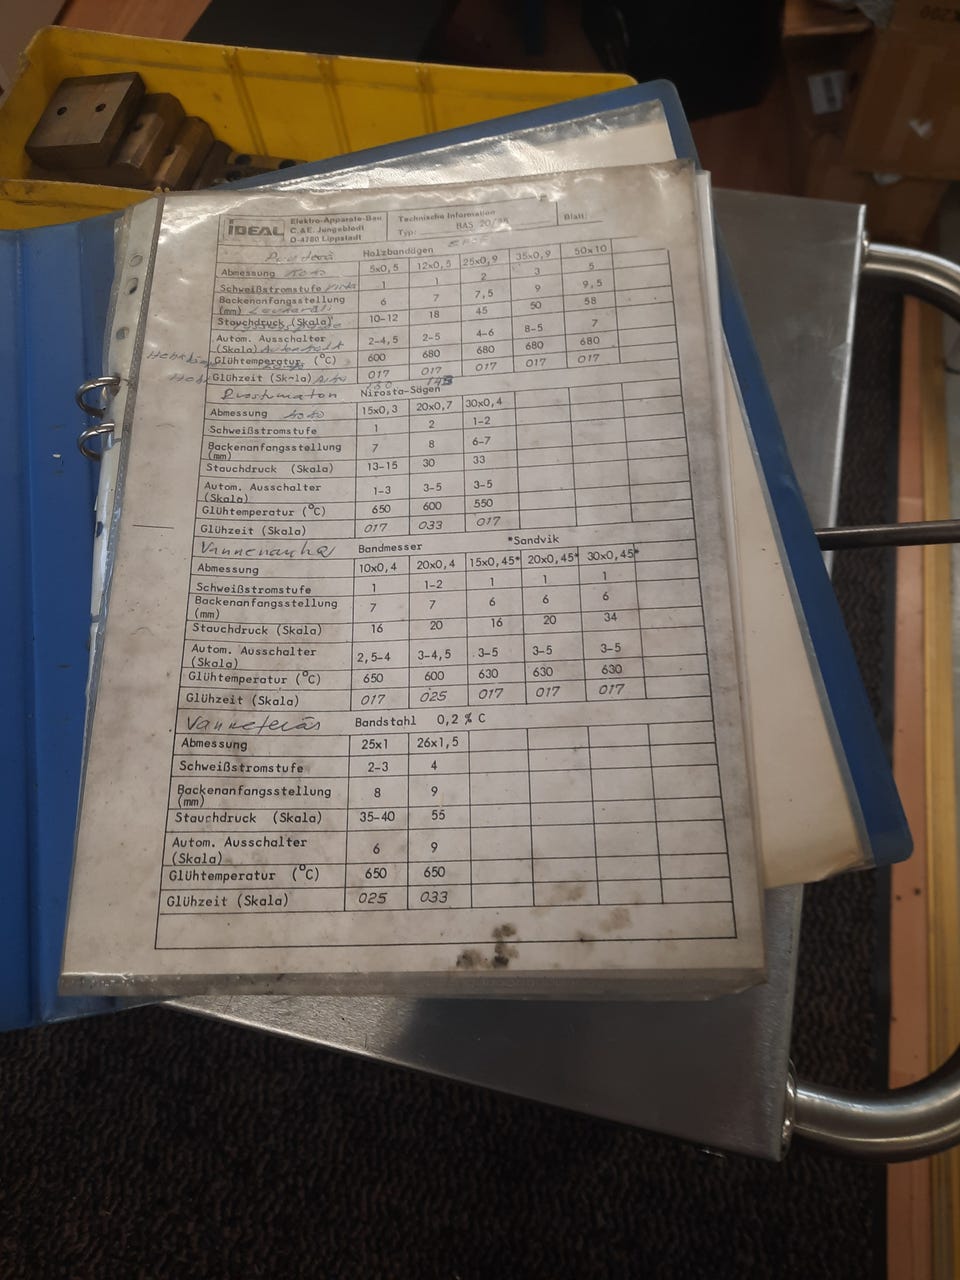 iDEAL Elektro-Apparate-Bau Technische Information Blatt:
C.&E. Jungeblodt Typ: BAS 20/
D-4780 Lippstadt
Holzbandägen
Abmessung 5x0,5 12x0,5 25x0,9 35x0,9 50x10
Schweißstromstufe 1 1 2 3 5
Backenanfangsstellung (mm) 6 7 7,5 9 9,5
Stauchdruck (Skala) 10-12 18 45 50 58
Autom. Ausschalter (Skala) 2-4,5 2-5 4-6 8-5 7
Glühtemperatur (°C) 600 680 680 680 680
Glühzeit (Skala) 017 017 017 017 017
Nirosta-Sägen
Abmessung 15x0,3 20x0,7 30x0,4
Schweißstromstufe 1 2 1-2
Backenanfangsstellung (mm) 7 8 6-7
Stauchdruck (Skala) 13-15 30 33
Autom. Ausschalter (Skala) 1-3 3-5 3-5
Glühtemperatur (°C) 650 600 550
Glühzeit (Skala) 017 033 017
Bandmesser *Sandvik
Abmessung 10x0,4 20x0,4 15x0,45* 20x0,45* 30x0,45*
Schweißstromstufe 1 1-2 1 1 1
Backenanfangsstellung (mm) 7 7 6 6 6
Stauchdruck (Skala) 16 20 16 20 34
Autom. Ausschalter (Skala) 2,5-4 3-4,5 3-5 3-5 3-5
Glühtemperatur (°C) 650 600 630 630 630
Glühzeit (Skala) 017 025 017 017 017
Bandstahl 0,2 % C
Abmessung 25x1 26x1,5
Schweißstromstufe 2-3 4
Backenanfangsstellung (mm) 8 9
Stauchdruck (Skala) 35-40 55
Autom. Ausschalter (Skala) 6 9
Glühtemperatur (°C) 650 650
Glühzeit (Skala) 025 033